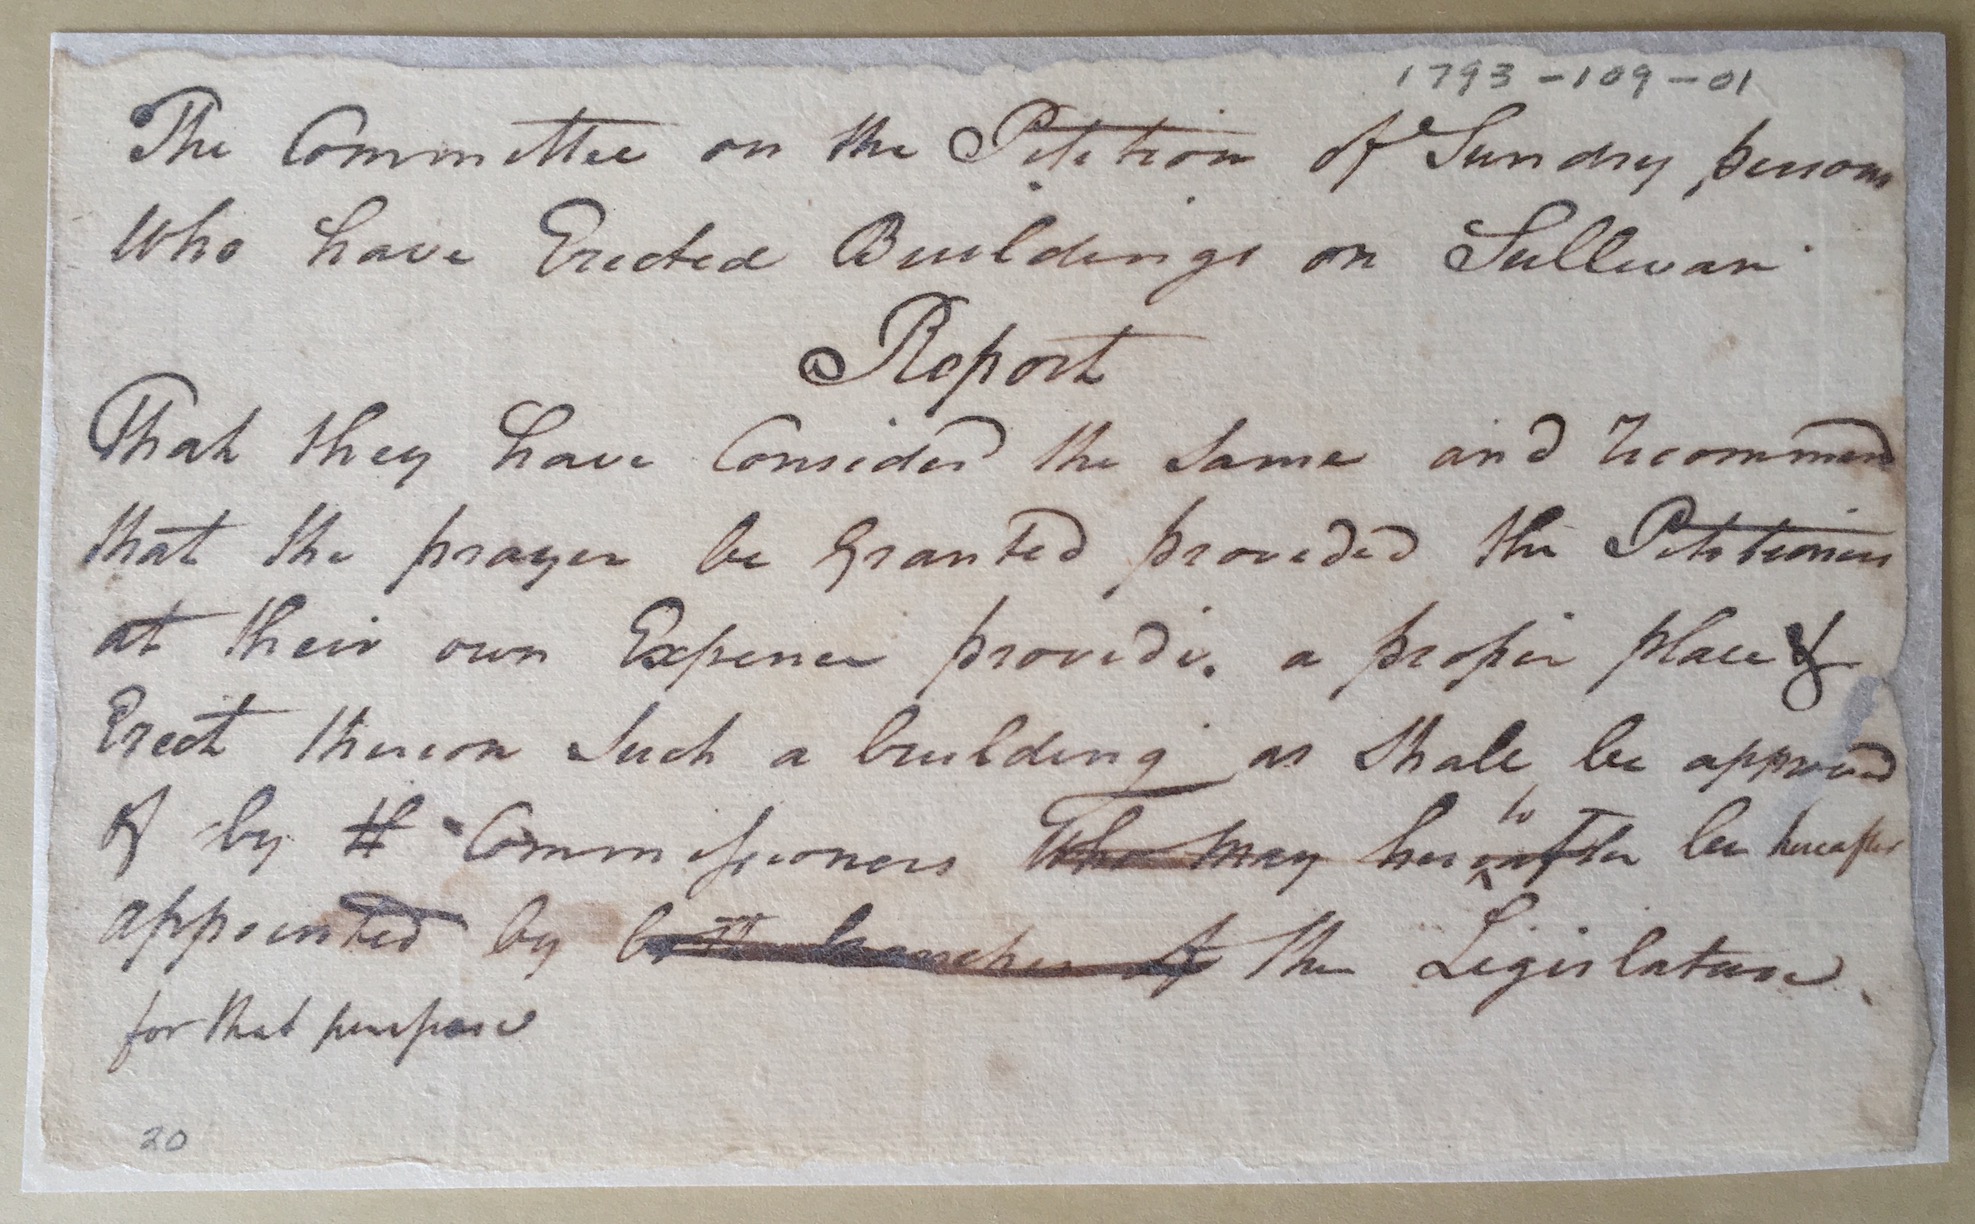 1793-109-01
The Committee on the Petition of Sundry persons
Who have Erected Buildings on Sullivan
Report
That they have Considerd the Same and recommend
that the prayer be Granted provided the Petitioners
at their own Expence provide. a proper place &
Erect thereon Such a building as Shall be approved
of by Commissioners Who may hereafter to be hereafter
appointed by both branches of the Legislature
for that purpose
20